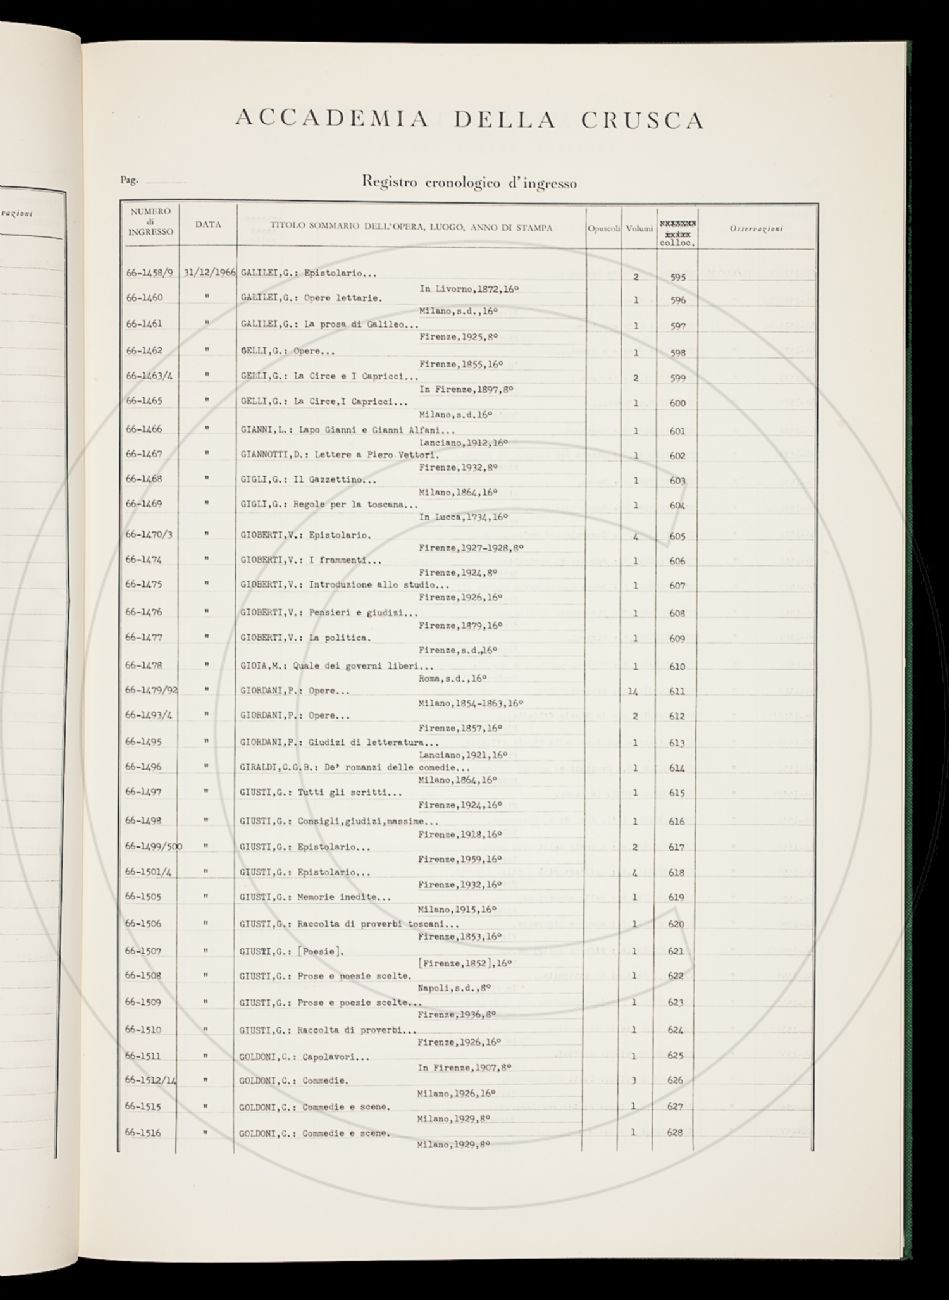 ACCADEMIA DELLA CRUSCA
Pag.
Registro cronologico d'ingresso
vazioni
NUMERO di INGRESSO DATA TITOLO SOMMARIO DELL'OPERA, LUOGO, ANNO DI STAMPA Opuscoli Volumi colloc. Osservazioni
66-1458/9 31/12/1966 GALILEI,G.: Epistolario... 2 595
In Livorno,1872,16º
66-1460 " GALILEI,G.: Opere lettarie. 1 596
Milano,s.d.,16º
66-1461 " GALILEI,G.: La prosa di Galileo... 1 597
Firenze,1925,8º
66-1462 " GELLI,G.: Opere... 1 598
Firenze,1855,16º
66-1463/4 " GELLI,G.: La Circe e I Capricci... 2 599
In Firenze,1897,8º
66-1465 " GELLI,G.: La Circe,I Capricci... 1 600
Milano,s.d.16º
66-1466 " GIANNI,L.: Lapo Gianni e Gianni Alfani... 1 601
Lanciano,1912,16º
66-1467 " GIANNOTTI,D.: Lettere a Piero Vettori. 1 602
Firenze,1932,8º
66-1468 " GIGLI,G.: Il Gazzettino... 1 603
Milano,1864,16º
66-1469 " GIGLI,G.: Regole per la toscana... 1 604
In Lucca,1734,16º
66-1470/3 " GIOBERTI,V.: Epistolario. 4 605
Firenze,1927-1928,8º
66-1474 " GIOBERTI,V.: I frammenti... 1 606
Firenze,1924,8º
66-1475 " GIOBERTI,V.: Introduzione allo studio... 1 607
Firenze,1926,16º
66-1476 " GIOBERTI,V.: Pensieri e giudizi... 1 608
Firenze,1879,16º
66-1477 " GIOBERTI,V.: La politica. 1 609
Firenze,s.d.,16º
66-1478 " GIOIA,M.: Quale dei governi liberi... 1 610
Roma,s.d.,16º
66-1479/92 " GIORDANI,P.: Opere... 14 611
Milano,1854-1863,16º
66-1493/4 " GIORDANI,P.: Opere... 2 612
Firenze,1857,16º
66-1495 " GIORDANI,P.: Giudizi di letteratura... 1 613
Lanciano,1921,16º
66-1496 " GIRALDI,C.G.B.: De' romanzi delle comedie... 1 614
Milano,1864,16º
66-1497 " GIUSTI,G.: Tutti gli scritti... 1 615
Firenze,1924,16º
66-1498 " GIUSTI,G.: Consigli,giudizi,massime... 1 616
Firenze,1918,16º
66-1499/500 " GIUSTI,G.: Epistolario... 2 617
Firenze,1959,16º
66-1501/4 " GIUSTI,G.: Epistolario... 4 618
Firenze,1932,16º
66-1505 " GIUSTI,G.: Memorie inedite... 1 619
Milano,1915,16º
66-1506 " GIUSTI,G.: Raccolta di proverbi toscani... 1 620
Firenze,1853,16º
66-1507 " GIUSTI,G.: [Poesie]. 1 621
[Firenze,1852],16º
66-1508 " GIUSTI,G.: Prose e poesie scelte. 1 622
Napoli,s.d.,8º
66-1509 " GIUSTI,G.: Prose e poesie scelte... 1 623
Firenze,1936,8º
66-1510 " GIUSTI,G.: Raccolta di proverbi... 1 624
Firenze,1926,16º
66-1511 " GOLDONI,C.: Capolavori... 1 625
In Firenze,1907,8º
66-1512/14 " GOLDONI,C.: Commedie. 3 626
Milano,1926,16º
66-1515 " GOLDONI,C.: Commedie e scene. 1 627
Milano,1929,8º
66-1516 " GOLDONI,C.: Commedie e scene. 1 628
Milano,1929,8º